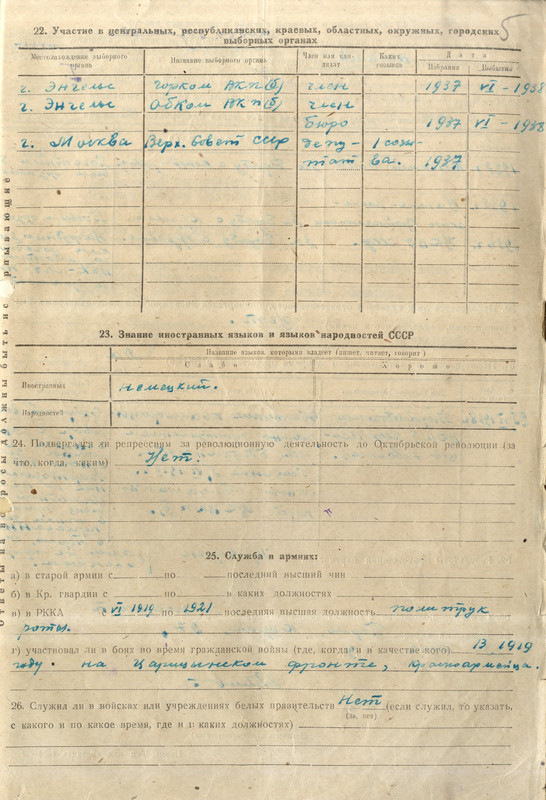 5
22. Участие в центральных, республиканских, краевых, областных, окружных, городских
выборных органах
Местонахождение выборного органа | Название выборного органа | Член или кандидат | Какого созыва | Дата
Избрания | Выбытия
г. Энгельс | Горком ВКП(б) | член | 1937 | VI - 1938
г. Энгельс | Обком ВКП(б) | член
бюро | 1937 | VI - 1938
г. Москва | Верх. Совет СССР | депу- | 1 созы-
татат | ва. | 1937
23. Знание иностранных языков и языков народностей СССР
Название языков которыми владеет (пишет, читает, говорит)
Слабо | Хорошо
Иностранных | немецкий.
Народностей
24. Подвергался ли репрессиям за революционную деятельность до Октябрьской революции (за
что, когда, каким) Нет.
25. Служба в армиях:
а) в старой армии с по последний высший чин
б) в Кр. гвардии с по в каких должностях
в) в РККА с VI 1919 по 1921 последняя высшая должность политрук
роты.
г) участвовал ли в боях во время гражданской войны (где, когда и в качестве кого) В 1919
году. на Царицынском фронте, красноармейца.
26. Служил ли в войсках или учреждениях белых правительств Нет (если служил, то указать,
(да, нет)
с какого и по какое время, где и в каких должностях)
Ответы на вопросы должны быть ис рпывающие